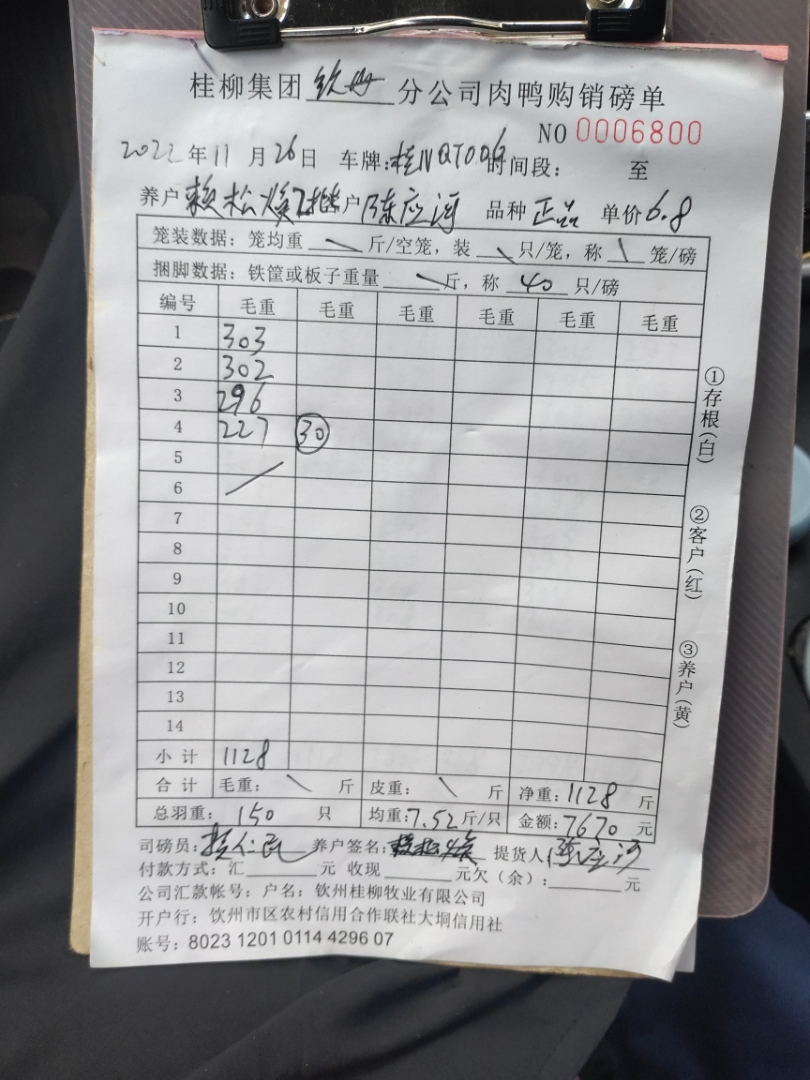 桂柳集团 钦州 分公司肉鸭购销磅单
NO 0006800
2022年11月26日 车牌:桂NQT006 时间段: 至
养户 赖松焕 客户 陈应河 品种 正品 单价6.8
笼装数据:笼均重 \ 斤/空笼,装 \ 只/笼,称 \ 笼/磅
捆脚数据:铁筐或板子重量 \ 斤,称 40 只/磅
编号 毛重 毛重 毛重 毛重 毛重 毛重
1 303
2 302
3 296
4 227 30
5
6
7
8
9
10
11
12
13
14
小计 1128
合计 毛重: \ 斤 皮重: \ 斤 净重:1128 斤
总羽重: 150 只 均重:7.52斤/只 金额:7670 元
司磅员: 养户签名:赖松焕 提货人:陈应河
付款方式:汇 元 收现 元欠(余): 元
公司汇款帐号:户名:钦州桂柳牧业有限公司
开户行:钦州市区农村信用合作联社大垌信用社
账号:8023 1201 0114 4296 07
①存根(白)
②客户(红)
③养户(黄)